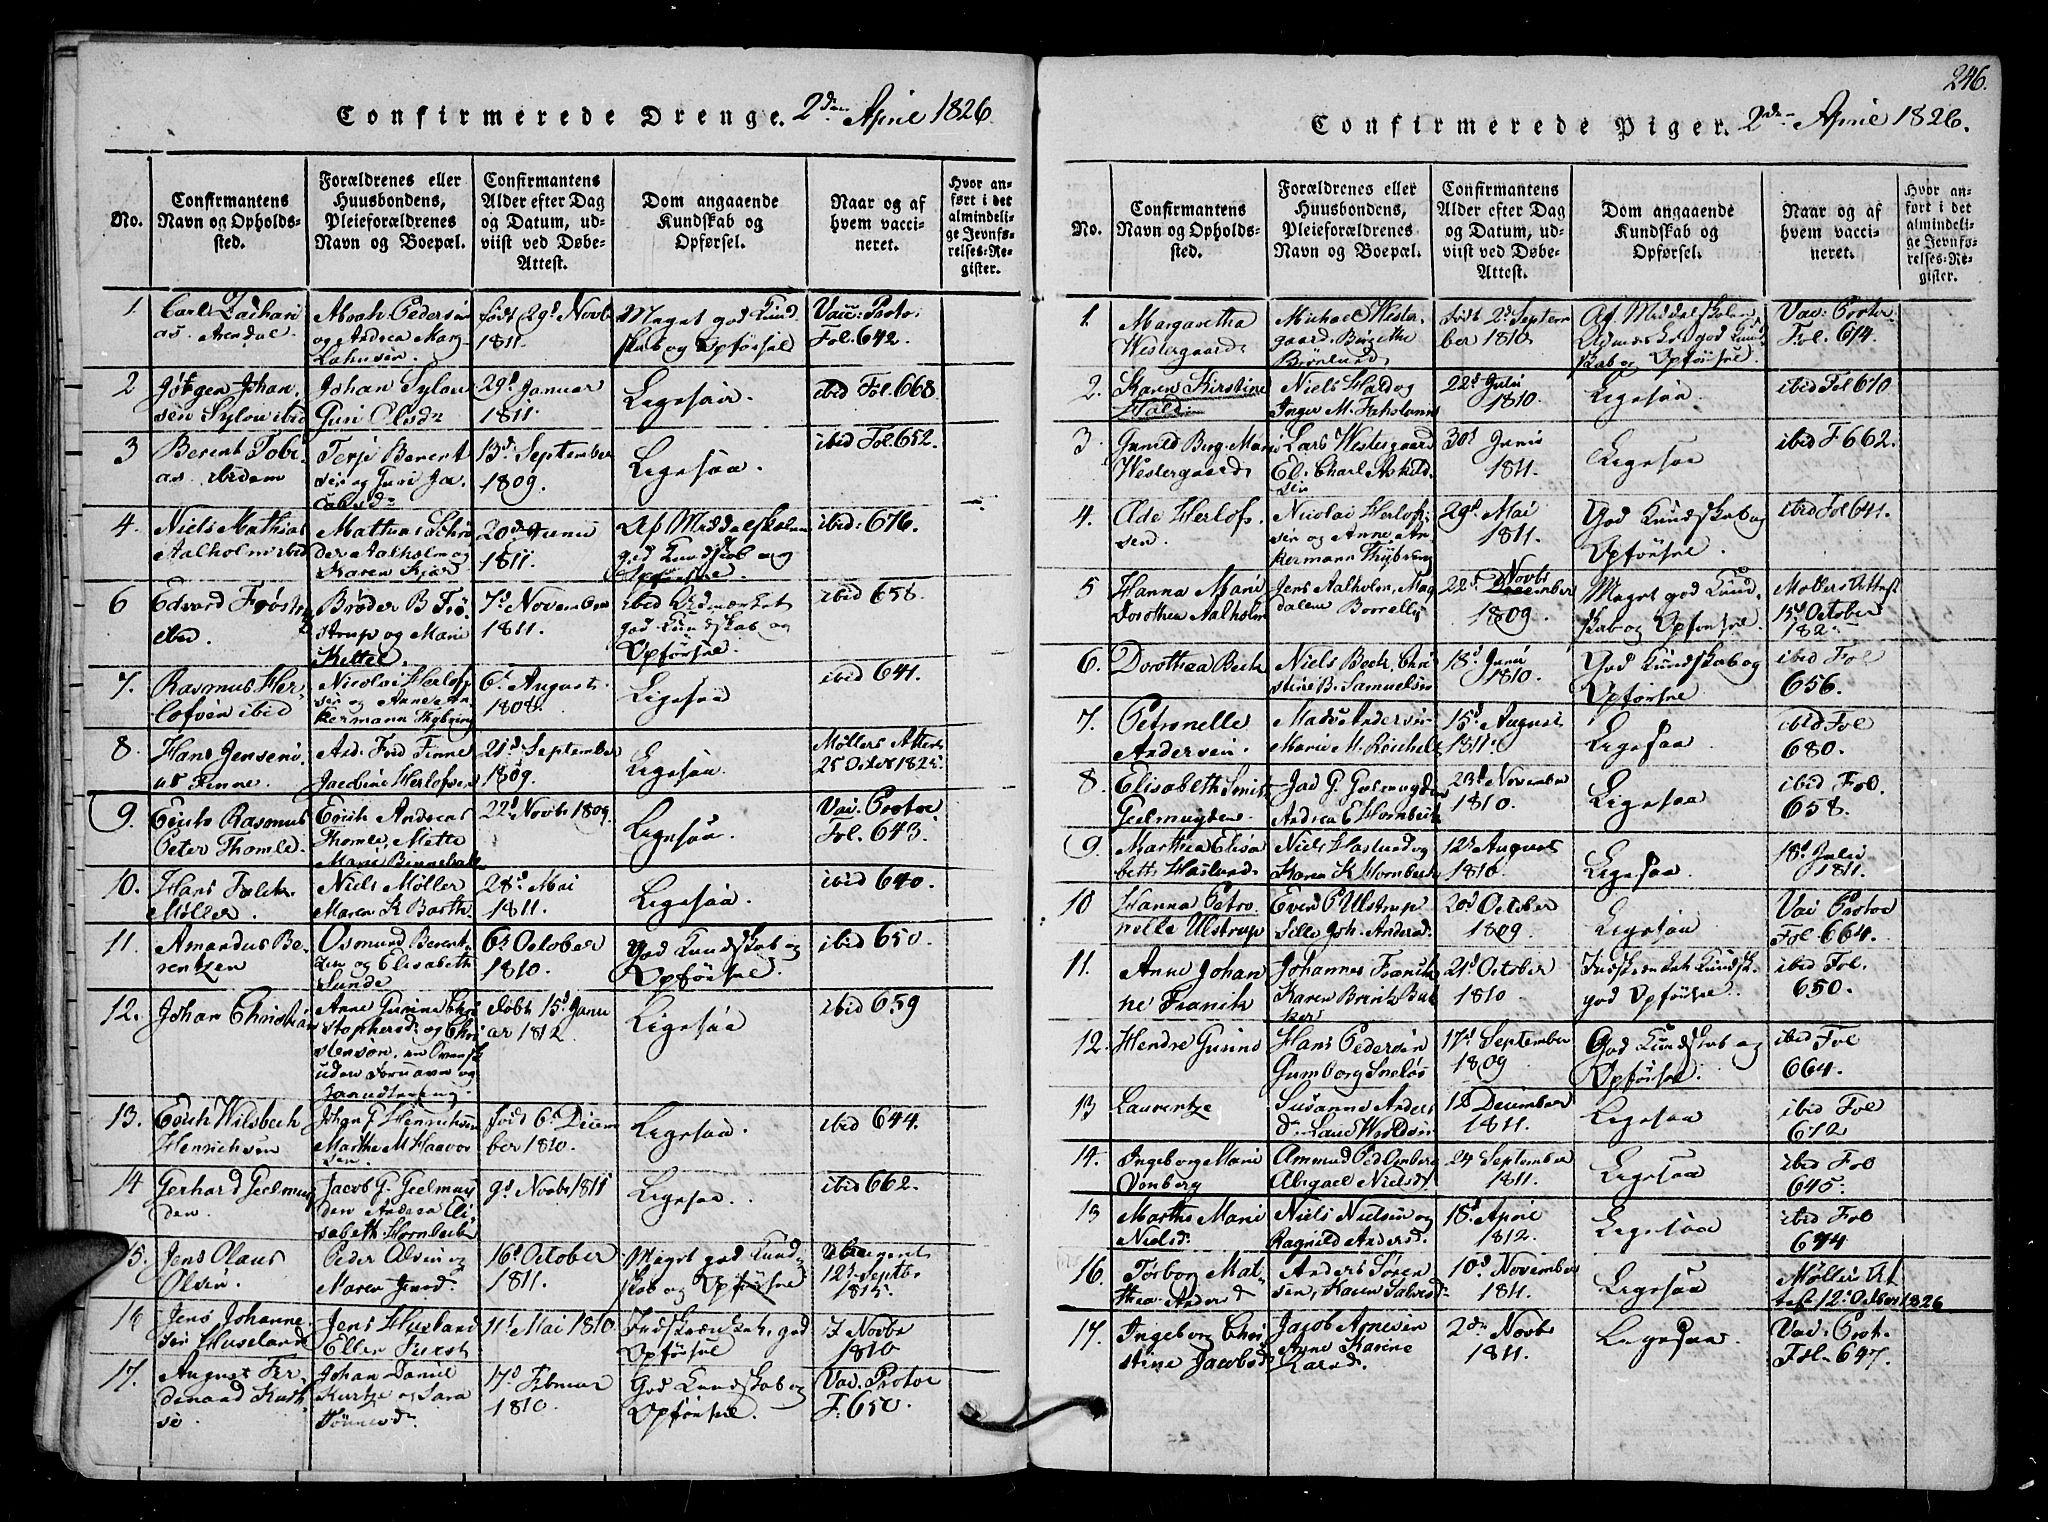 246.
Confirmerede Drenge. 2den April 1826
No.
Confirmantens
Navn og Opholds-
sted.
Forældrenes eller
Huusbondens,
Pleieforældrenes
Navn og Boepæl.
Confirmantens
Alder efter Dag
og Datum, ud-
viist ved Døbe-
Attest.
Dom angaaende
Kundskab og
Opførsel.
Naar og af
hvem vacci-
neret.
Hvor an-
ført i det
almindeli-
ge Jevnfø-
relses-Re-
gister.
1. Carl Zachari
as Arendal.
Pedersen
og Andrea
født 29d Novb
1811.
Meget god Kund
skab og Opførsel
Vaic: Proto:
Fol. 642.
2 Jørgen Johan
sen Sylow ibid
Johan Sylow
Guri Olsdr
29d Januar
1811.
Ligesaa.
ibid Fol. 668.
3 Berent Tobi
as ibidem
Terje Berent
sen og Guri Ja
cobsdr
13d September
1809.
Ligesaa.
ibid Fol. 652.
4. Niels Mathias
Aalholm ibid
Mathias Schrø
der Aalholm og
Karen
20d Juni
1811.
Af Middelskolen
god Kundskab og
Opførsel.
ibid: 676.
6 Edvard Frøstrup
ibid.
Brøder B Frø
strup og Marie
Kittel.
7d November
1811.
ibid Udmærket
god Kundskab og
Opførsel
ibid 658.
7. Rasmus Her-
lofsen ibid
Nicolai Herlof
sen og Anne An
kermann Thybring
6t August
1808.
Ligesaa
ibid 641.
8 Hans Jenseni
us Finne.
Ard. Frid Finne
Jacobine Herlofsen
21d September
1809.
Ligesaa.
Møllers Attest
25 Octbr 182
9. Erich Rasmus
Peter Thomle.
Erich Andreas
Thomle, Mette
Marie
22d Novbr 1809.
Ligesaa.
Vai. Protoc
Fol. 643.
10. Hans Falck
Møller.
Niels Møller
Maren K Barth.
28d Mai
1811.
Ligesaa
ibid 640.
11. Amandus Be-
rentzen
Osmund Berent-
zen og Elisabeth
Sunde
6t October
1810.
God Kundskab og
Opførsel
ibid 650.
12. Johan Christian
Anne Gurine Chri
stophersd. og Chri
stensen, en Svensk
uden Fornavn og
døbt 15d Janu
ar 1812.
Ligesaa
ibid 659
13. Erich Wilsbech
Henrichsen
Johan F Henrichsen
Marthe M Haavor
sen.
født 6t Decem
ber 1810.
Ligesaa.
ibid 644.
14 Gerhard Geelmuy
den.
Jacob G. Geelmuy
den Andrea Eli
sabeth Hornbech
9d Novbr 1811
Ligesaa.
ibid 662.
15. Jens Olaus
Olsen.
Peder Olsen og
Maren Jensd.
16d October
1811.
Meget god Kund-
skab og Opførsel
12t Septbr
1815.
16 Jens Johanne-
sen Huseland
Jens Huseland
Ellen
11t Mai 1810.
Indskrænket, god
Opførsel
7. Novbr
1810
17. August Fer-
dinand Kurt
ze
Johan Daniel
Kurtze og Sara
Tønnesd.
17d Februar
1810.
God Kundskab og
Opførsel
Vai. Protoc
F. 650.
Confirmerede Piger. 2den April 1826.
No.
Confirmantens
Navn og Opholds-
sted.
Forældrenes eller
Huusbondens,
Pleieforældrenes
Navn og Boepæl.
Confirmantens
Alder efter Dag
og Datum, ud-
viist ved Døbe-
Attest.
Dom angaaende
Kundskab og
Opførsel.
Naar og af
hvem vacci-
neret.
Hvor an-
ført i det
almindeli-
ge Jevnfø-
relses-Re-
gister.
1. Margaretha
Westergaard
Michael Wester
gaard, Birgithe
født 2d Septem
ber 1810
Af Middelskolen
Udmærket god Kund
skab og Opførsel
Vai: Protoc
Fol. 614.
2. Karen Kirstine
Hald.
Niels Hald og
Inger M.
22d Juli
1810.
Ligesaa.
ibid Fol 670
3 Gunild Birg. Marie
Westergaard
Lars Westergaard
El. Charl Askild
sen
30t Junis
1811.
Ligesaa
ibid F 662.
4. Ade Herlof
sen.
Nicolai Herlof
sen og Anne An
kermann Thybring
29d Mai
1811.
God Kundskab og
Opførsel.
ibid Fol 641.
5 Hanna Marie
Dorothea Aalholm
Jens Aalholm, Mag
dalen Borrelly
22d Novbr
December
1809.
Meget god Kund
skab og Opførsel.
Møllers Attest
15d October
182
6. Dorothea Bech
Niels Bech. Chri
stine B. Samuelsen
18d Juni
1810.
God Kundskab og
Opførsel
ibid Fol
656.
7. Petronelle
Andersen.
Mads Andersen
Marie M. Reichelt
15d August
1811.
Ligesaa
ibid Fol
680.
8. Elisabeth Smith
Geelmuyden
Jac G. Geelmuyden
Andrea E Hornbech
23d November
1810.
Ligesaa
ibid Fol.
658.
9. Marthea Elisa
beth Haslund
Niels Haslund og
Karen K Hornbech
12t August
1810.
Ligesaa
18d Julii
1811.
10 Hanna Petro
nelle Ulstrup
Even P Ulstrup
Sille Joh. Andersd.
20d October
1809
Ligesaa
Vai Protoc
Fol. 664.
11. Anne Johan
ne Franck
Johannes Franck
Karen Brink
21d October
1810
Indskrænket Kundsk.
god Opførsel
ibid Fol.
650.
12. Hendre Gurine
Hans Pedersen
Gumborg
17d September
1809
God Kundskab og
Opførsel.
ibid Fol
664.
13 Laurentze
Susanne Anders
d.
18 December
1811.
Ligesaa
ibid Fol
672
14. Ingeborg Marie
Omberg
Ammund Ped Omberg
Abigael Nielsd
24 September
1811.
Ligesaa
ibid Fol
645.
15 Marthe Marie
Nielsd.
Niels Nielsen og
Ragnild Andersd.
15d April
1812.
Ligesaa
ibid Fol
674
16. Torborg Mat-
thea Andersd
Anders Søren
sen, Karen Salvesd.
10d November
1811.
Ligesaa
Møllers At
test 12t Octbr 1826
17. Ingeborg Chri
stine Jacobsd
Jacob Arnesen
Anne Karine
Larsd.
2den Novbr
1811.
Ligesaa.
Vai: Prot.
Fol. 647.